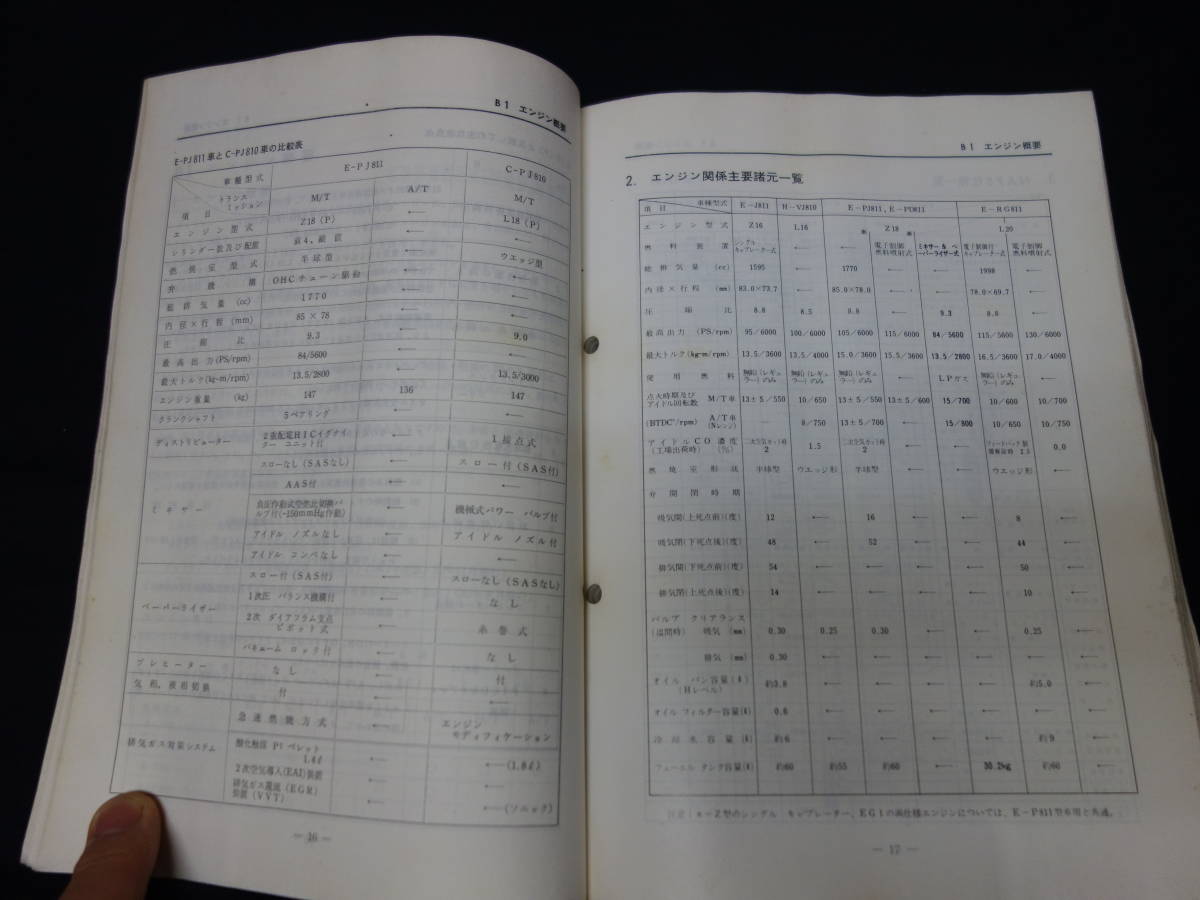 B1 エンジン概要
E-PJ811車とC-PJ810車の比較表
車種型式 E-PJ811 C-PJ810
項目 トランスミッション M/T A/T M/T
エンジン型式 Z18(P) ← L18(P)
シリンダー数及び配置 直4，縦置 ← ←
燃焼室型式 半球型 ← ウエッジ型
弁機構 OHCチェーン駆動 ← ←
総排気量 (cc) 1770 ← ←
内径×行程 (mm) 85×78 ← ←
圧縮比 9.3 ← 9.0
最高出力 (PS/rpm) 84/5600 ← ←
最大トルク(kg-m/rpm) 13.5/2800 ← 13.5/3000
エンジン重量 (kg) 147 136 147
クランクシャフト 5ベアリング ← ←
ディストリビューター 2重配電HICイグナイター ユニット付 ← 1接点式
ミキサー スローなし(SASなし) ← スロー付(SAS付)
AAS付 ← ←
負圧作動式空燃比切換バルブ付(-150mmHg作動) ← 機械式パワー バルブ付
アイドル ノズルなし ← アイドル ノズル付
アイドル コンペなし ← ←
ベーパーライザー スロー付(SAS付) ← スローなし(SASなし)
1次圧 バランス機構付 ← なし
2次 ダイアフラム支点 ピボット式 ← 糸巻式
バキューム ロック付 ← なし
プレヒーター なし ← 付
気相，液相切換 付 ← ←
排気ガス対策システム 急速燃焼方式 ← エンジン モディフィケーション
酸化触媒 Ptペレット 1.4ℓ ← ←(1.8ℓ)
2次空気導入(EAI)装置
排気ガス還流(EGR)装置(VVT) ← ←(ソニック)
— 16 —
B1 エンジン概要
2. エンジン関係主要諸元一覧
項目 車種型式 E-J811 H-VJ810 E-PJ811，E-PD811 E-RG811
エンジン型式 Z16 L16 Z18 L20
燃料装置 シングルキャブレーター式 ← ← 電子制御燃料噴射式 ミキサー＆ベーパーライザー式 電子制御付キャブレーター式 電子制御燃料噴射式
総排気量 (cc) 1595 ← 1770 ← ← 1998 ←
内径×行程 (mm) 83.0×73.7 ← 85.0×78.0 ← ← 78.0×69.7 ←
圧縮比 8.8 8.5 8.8 ← 9.3 8.8 ←
最高出力 (PS/rpm) 95/6000 100/6000 105/6000 115/6000 84/5600 115/5600 130/6000
最大トルク(kg-m/rpm) 13.5/3600 13.5/4000 15.0/3600 15.5/3600 13.5/2800 16.5/3600 17.0/4000
使用燃料 無鉛(レギュラー)のみ 無鉛(レギュラー)のみ 無鉛(レギュラー)のみ ← LPガス 無鉛(レギュラー)のみ ←
点火時期及びアイドル回転数 M/T車 13±5/550 10/650 13±5/550 13±5/600 15/700 10/600 10/700
(BTDC°/rpm) A/T車(Nレンジ) — 8/750 13±5/700 ← 15/800 10/650 10/750
アイドルCO濃度(工場出荷時) (%) 二次空気カット時 2 1.5 二次空気カット時 2 0.0
燃焼室形状 半球型 ウエッジ形 半球型 ← ← ウエッジ形 ←
弁開閉時期
吸気開(上死点前)(度) 12 ← 16 ← ← 8 ←
吸気閉(下死点後)(度) 48 ← 52 ← ← 44 ←
排気開(下死点前)(度) 54 ← ← ← ← 50 ←
排気閉(上死点後)(度) 14 ← ← ← ← 10 ←
バルブ クリアランス
(温間時) 吸気 (mm) 0.30 0.25 0.30 ← ← 0.25 ←
排気 (mm) 0.30 ← ← ← ← ← ←
オイル パン容量(ℓ)(Hレベル) 約3.8 ← ← ← ← 約5.0 ←
オイル フィルター容量(ℓ) 0.6 ← ← ← ← ← ←
冷却水容量 (ℓ) 約6 ← ← ← ← 約9 ←
フューエル タンク容量(ℓ) 約60 約55 約60 ← 30.2kg 約60 ←
注意：※−Z型のシングル キャブレーター、EGIの両仕様エンジンについては、E−P811型車用と共通。
— 17 —